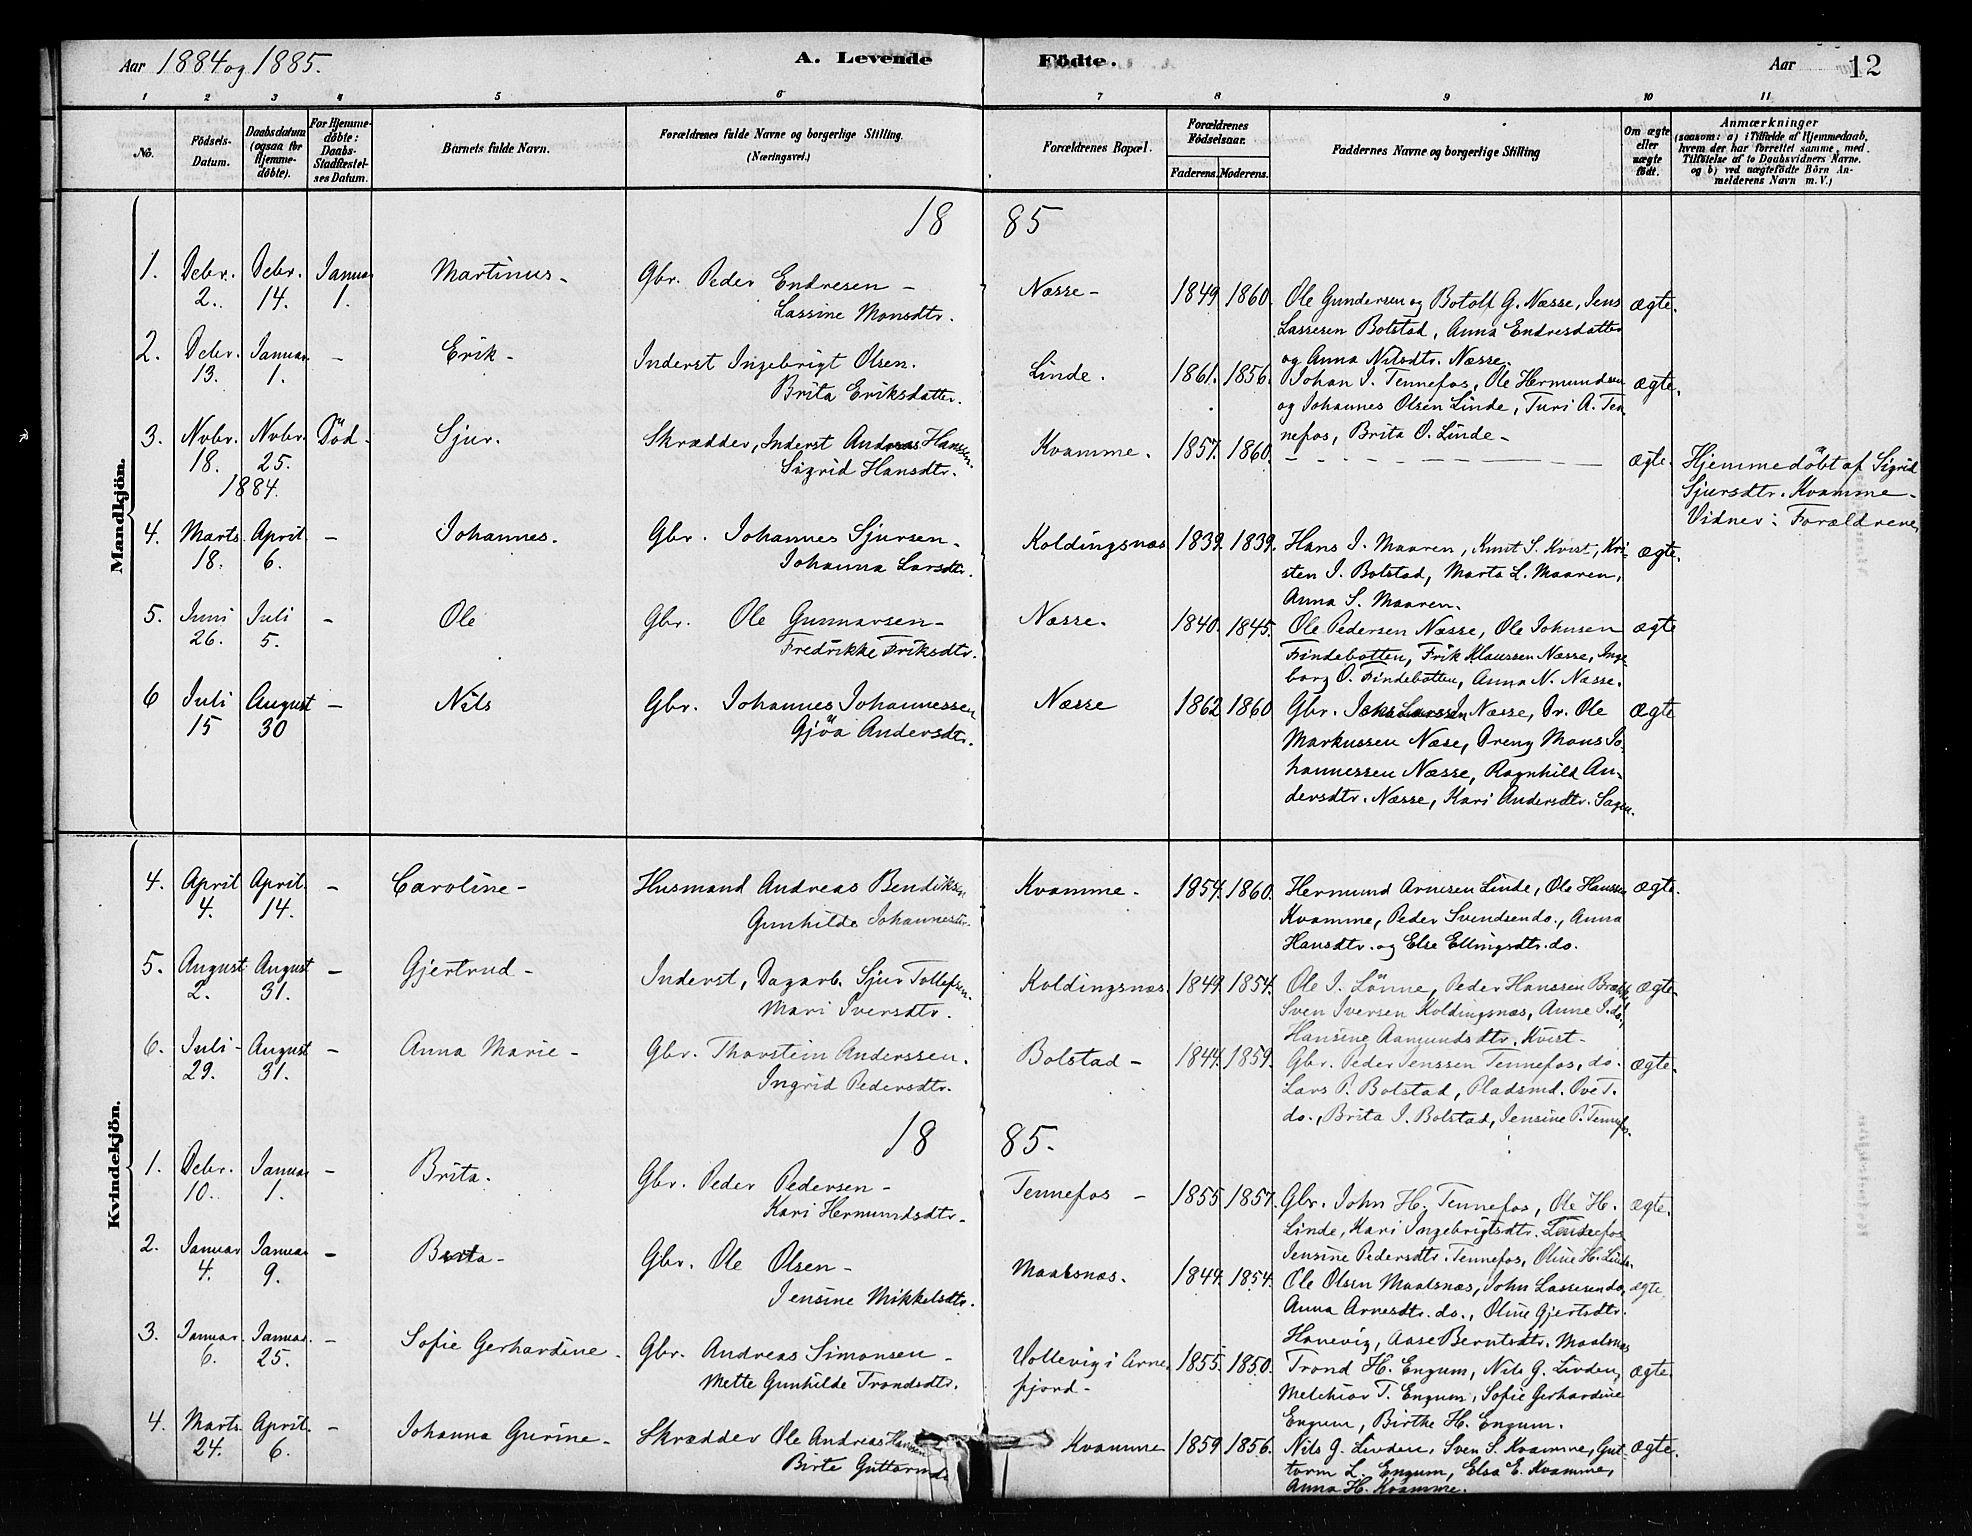 Aar 1884 og 1885. A. Levende Fødte. Aar 12
1 2 3 4 5 6 7 8 9 10 11
No. Födsels-Datum. Daabsdatum (ogsaa for Hjemmedöbte). For Hjemmedöbte: Daabs-Stadfæstelses Datum. Barnets fulde Navn. Forældrenes fulde Navne og borgerlige Stilling. (Næringsvei.) Forældrenes Bopæl. Forældrenes Födselsaar. Faderens. Moderens. Faddernes Navne og borgerlige Stilling Om ægte eller uægte födt. Anmærkninger (saasom: a) i Tilfælde af Hjemmedaab, hvem der har forrettet samme, med Tilföielse af to Daabsvidners Navne. og b) ved uægtefödte Börn Anmelderens Navn m. V.)
Mandkjön.
18 85
1. Decbr. Decbr. Januar Martinus- Gbr. Peder Endresen - Næsse- 1849. 1860. Ole Gundersen og Botolf G. Næsse, Jens ægte.
2. 14. 1. Lassine Monsdtr. Lassesen Bolstad, Anna Endresdatter
og Anna Nilsdtr. Næsse.
2. Decbr. Januar - Erik- Inderst Ingebrigt Olsen. Linde. 1861. 1856. Johan I. Tennefos, Ole Hermundsen ægte.
13. 1. Brita Eriksdatter. og Johannes Olsen Linde, Turi A. Ten
nefos, Brita O. Linde-
3. Novbr. Novbr. Död- Sjur. Skrædder, Inderst Andreas Hansen. Kvamme. 1857. 1860. - - - ægte. Hjemmedöbt af Sigrid
18. 25. Sigrid Hansdtr. Sjursdtr. Kvamme-
1884. Vidner: Forældrene
4. Marts April - Johannes. Gbr. Johannes Sjursen- Koldingsnæs 1839. 1839. Hans I. Maaren, Knut S. Kvist, Kri- ægte.
18. 6. Johanna Larsdtr. sten I. Bolstad, Marta L. Maaren,
Anna S. Maaren.
5. Juni Juli - Ole Gbr. Ole Gunnarsen- Næsse. 1840. 1845. Ole Pedersen Næsse, Ole Johnsen ægte
26. 5. Fredrikke Eriksdtr. Findebotten, Erik Klaussen Næsse, Inge
borg O. Findebotten, Anna N. Næsse.
6 Juli August - Nils Gbr. Johannes Johannessen Næsse 1862 1860 Gbr. Næsse, Dr. Ole ægte
15 30 Gjöa Andersdtr. Markussen Næse, Dreng Mons Jo-
hannessen Næsse, Ragnhild An-
dersdtr. Næsse, Kari Andersdtr. Sagen.
Kvindekjön.
4. April April - Caroline- Husmand Andreas Bendiksen Kvamme. 1854. 1860. Hermund Arnesen Linde, Ole Hansen ægte.
4. 14. Gunhilde Johannesdtr. Kvamme, Peder Svendsen do., Anna
Hansdtr. og Else Ellingsdtr. do.
5. August August - Gjertrud- Inderst, Dagarb. Sjur Tollefsen. Koldingsnæs. 1849. 1854. Ole I. Lönne, Peder Hanssen ægte-
2. 31. Mari Iversdtr. Sven Iversen Koldingsnæs, Anne I. do.,
Hansine Aamundsdtr. Kvist-
6. Juli- August - Anna Marie- Gbr. Thorstein Anderssen. Bolstad- 1844. 1859. Gbr. Peder Jenssen Tennefos, do. ægte.
29. 31. Ingrid Pedersdtr. Lars P. Bolstad, Pladsmd. Ove T.
do., Brita I. Bolstad, Jensine P. Tennefos.
18 85.
1. Decbr. Januar - Brita. Gbr. Peder Pedersen- Tennefos - 1855. 1857. Gbr. John H. Tennefos, Ole H. ægte.
10. 1. Kari Hermundsdtr- Linde, Kari Ingebrigtsdtr. Tennefos
Jensine Pedersdtr. Tennefos, Oline H. Linde.
2. Januar Januar - Brita- Gbr. Ole Olsen- Maalsnæs. 1844. 1854. Ole Olsen Maalsnæs, John Lassesen do. ægte
4. 9. Jensine Mikkelsdtr. Anna Arnesdtr. do., Oline Gjertsdtr.
Hanevig, Aase Berntsdtr. Maalsnæs
3. Januar. Januar. - Sofie Gerhardine- Gbr. Andreas Simonsen- Vollevig i Arne 1855. 1850. Trond H. Engum, Nils G. Linden, ægte.
6. 25. Mette Gunhilde Trondsdtr. fjord- Melchior T. Engum, Sofie Gerhardine
Engum, Birthe H. Engum.
4. Marts April - Johanna Gurine- Skrædder Ole Andreas Hansen Kvamme 1859 1856. Nils G. Linden, Sven S. Kvamme, Gut- ægte.
24. 6. Birte Guttormsdtr torm L. Engum, Elsa E. Kvamme,
Anna H. Kvamme.